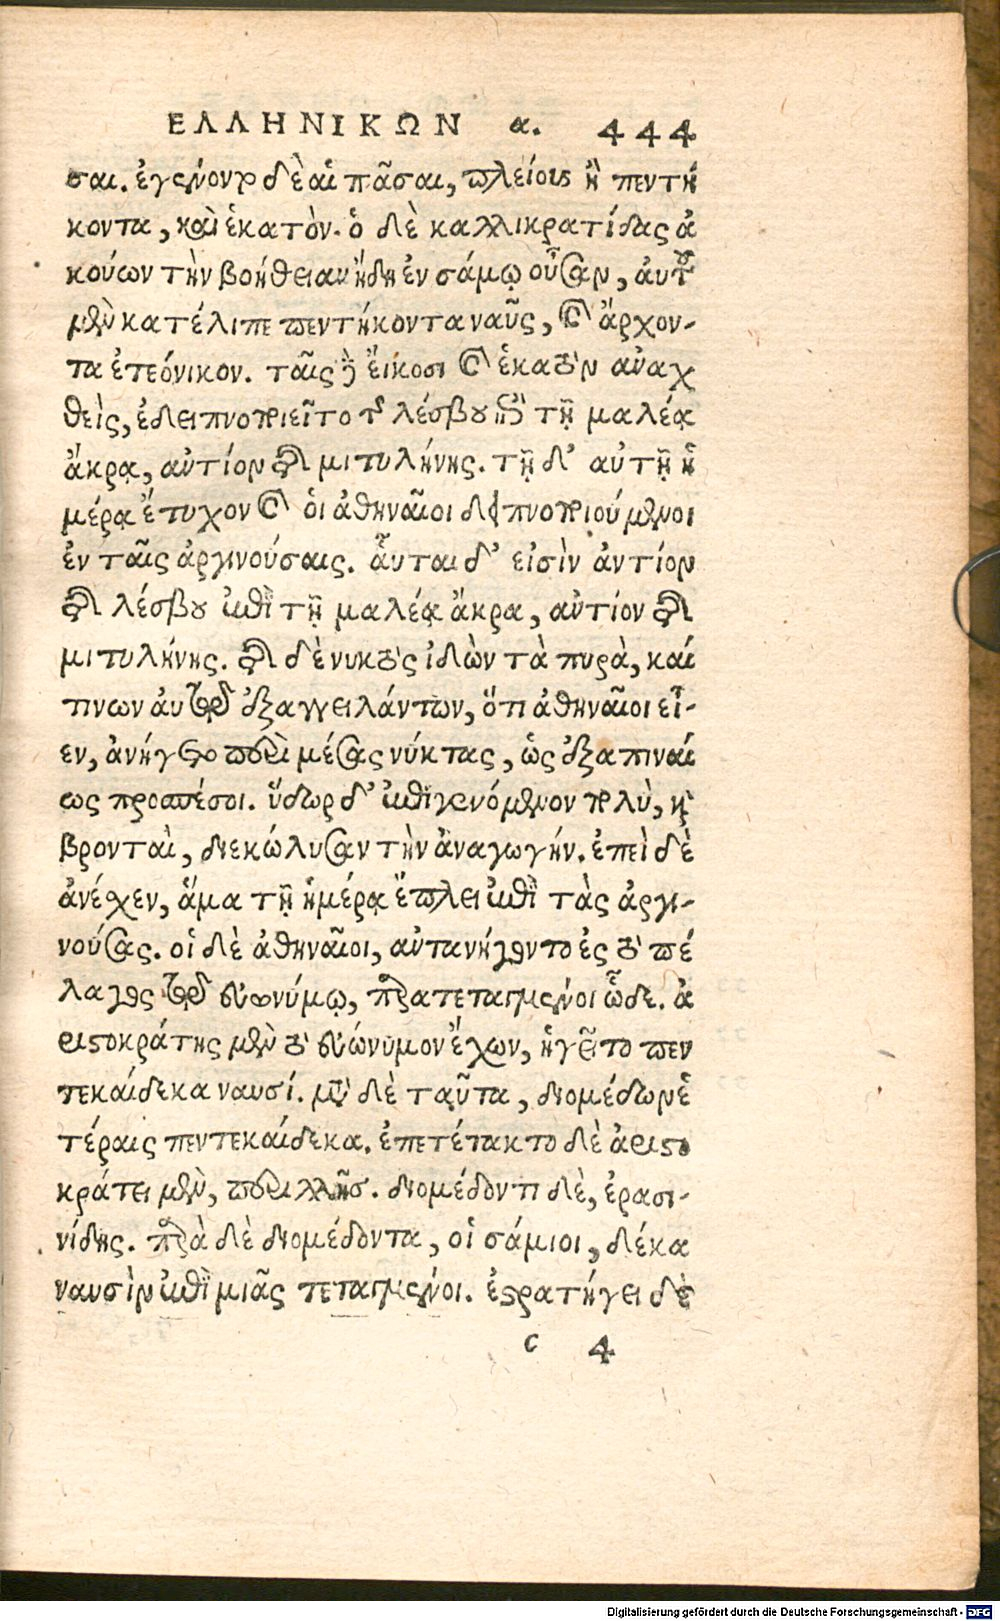 ΕΛΛΗΝΙΚΩΝ α. 444
σαι. ἐγένοντο δὲ αἱ πᾶσαι, πλείους ἢ πεντή
κοντα, καὶ ἑκατὸν. ὁ δὲ καλλικρατίδας ἀ
κούων τὴν βοήθειαν ἤδη ἐν σάμῳ οὖσαν, αὐτοῦ
μὲν κατέλιπε πεντήκοντα ναῦς, καὶ ἄρχον-
τα ἐτεόνικον. ταῖς δὲ εἴκοσι καὶ ἑκατὸν ἀναχ
θεὶς, ἐδειπνοποιεῖτο τῆς λέσβου ἐπὶ τῇ μαλέᾳ
ἄκρᾳ, ἀντίον τῆς μιτυλήνης. τῇ δ' αὐτῇ ἡ
μέρᾳ ἔτυχον καὶ οἱ ἀθηναῖοι δειπνοποιούμενοι
ἐν ταῖς ἀργινούσαις. αὗται δ' εἰσὶν ἀντίον
τῆς λέσβου ἐπὶ τῇ μαλέᾳ ἄκρα, ἀντίον τῆς
μιτυλήνης. τῆς δὲ νυκτὸς ἰδὼν τὰ πυρὰ, καί
τινων αὐτῷ ἐξαγγειλάντων, ὅτι ἀθηναῖοι εἶ-
εν, ἀνήγετο περὶ μέσας νύκτας, ὡς ἐξαπιναί
ως προσπέσοι. ὕδωρ δ' ἐπιγενόμενον πολὺ, καὶ
βρονταὶ, διεκώλυσαν τὴν ἀναγωγήν. ἐπεὶ δὲ
ἀνέχεν, ἅμα τῇ ἡμέρᾳ ἔπλει ἐπὶ τὰς ἀργι-
νούσας. οἱ δὲ ἀθηναῖοι, αὐτανήγοντο ἐς τὸ πέ
λαγος τῷ εὐωνύμῳ, παρατεταγμένοι ὧδε. ἀ
ριστοκράτης μὲν τὸ εὐώνυμον ἔχων, ἡγεῖτο πεν
τεκαίδεκα ναυσί. μετὰ δὲ ταῦτα, διομέδων ἑ
τέραις πεντεκαίδεκα. ἐπετέτακτο δὲ ἀριστο
κράτει μὲν, περικλῆς. διομέδοντι δὲ, ἐρασι-
νίδης. παρὰ δὲ διομέδοντα, οἱ σάμιοι, δέκα
ναυσὶν ἐπὶ μιᾶς τεταγμένοι. ἐστρατήγει δὲ
c 4
Digitalisierung gefördert durch die Deutsche Forschungsgemeinschaft - DFG